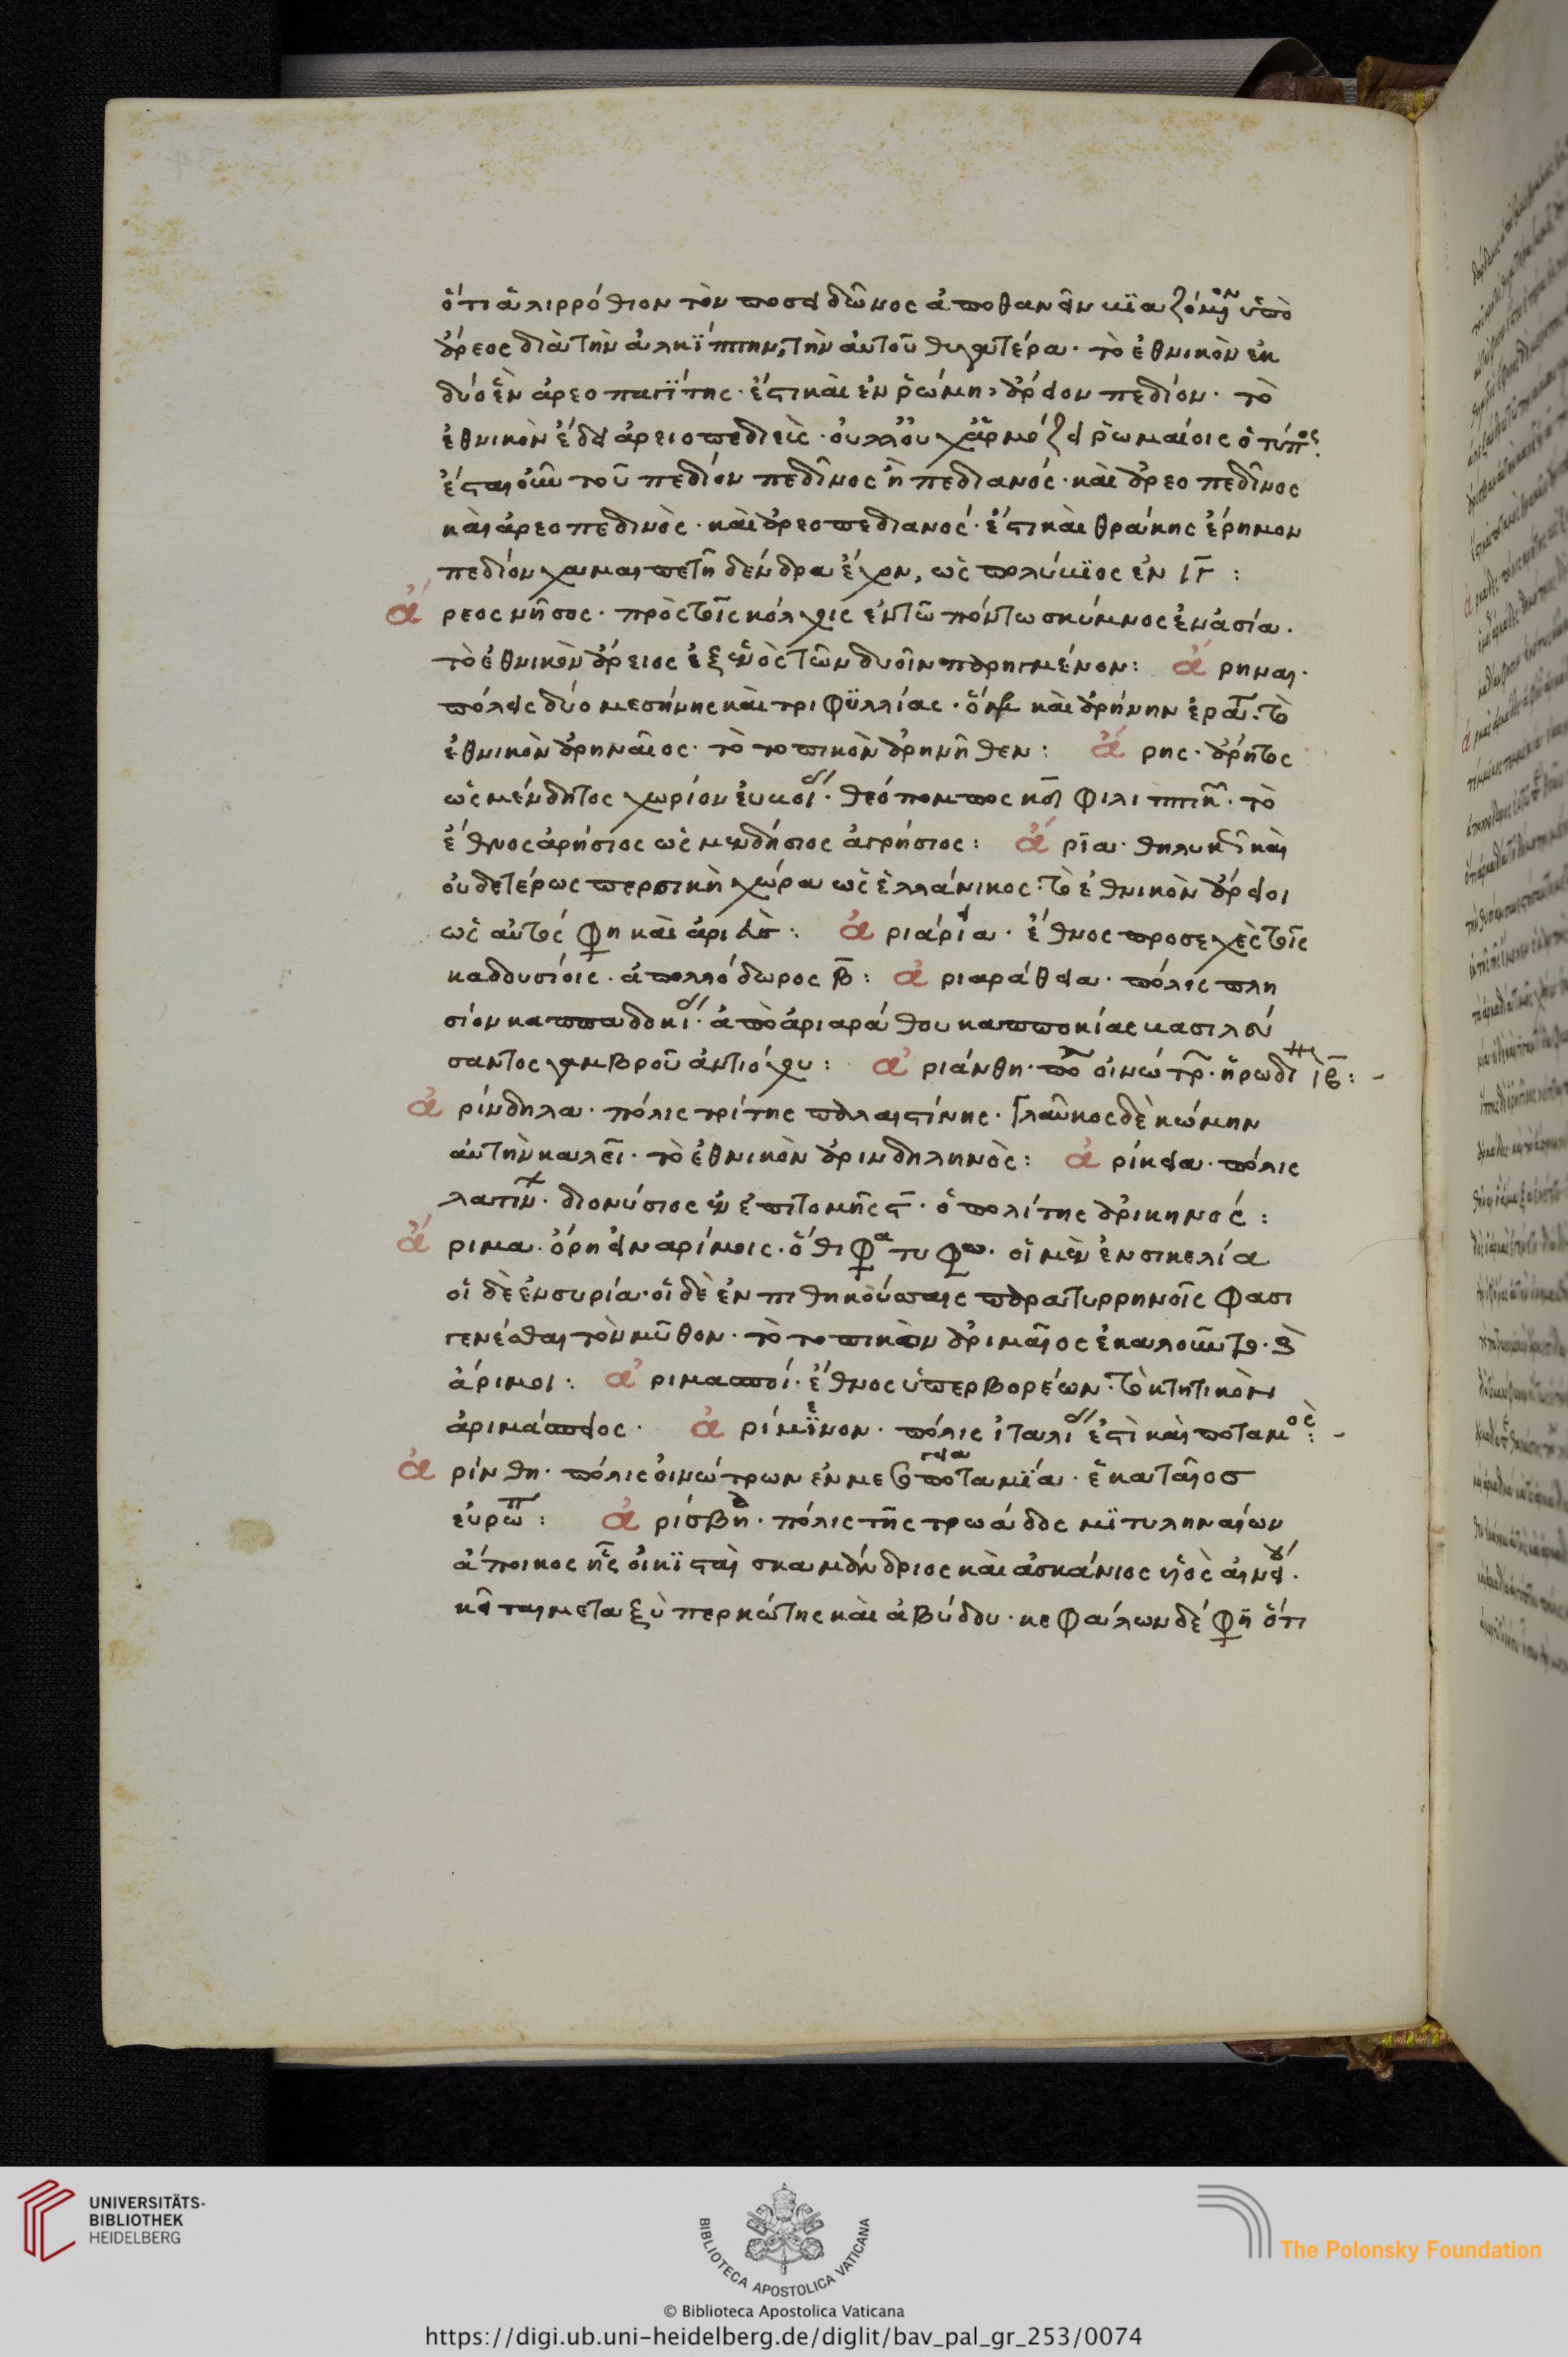 ὅτι ἁλιρρόθιον τὸν ποσειδῶνος ἀποθανεῖν βιαζόμενον ὑπὸ
ἄρεος διὰ τὴν ἀλκίππην, τὴν αὐτοῦ θυγατέρα· τὸ ἐθνικὸν ἐκ
δύο ἓν ἀρεοπαγίτης· ἔστι καὶ ἐν ῥώμη, ἄρειον πεδίον· τὸ
ἐθνικὸν ἔδει ἀρειοπεδιεὺς· οὐχ ἁρμόζει ῥωμαίοις ὁ τύπος
ἔσται οὖν τοῦ πεδίον πεδῖνος ἢ πεδιανός· καὶ ἀρεοπεδῖνος
καὶ ἀρεοπεδινὸς· καὶ ἀρεοπεδιανός· ἔστι καὶ θράκης ἔρημον
πεδίον χαμαιπετῆ δένδρα ἔχον, ὡς πολύβιος ἐν ιγ̄ :
ἄρεος νῆσος· πρὸς τοῖς κόλχοις ἐν τῶ πόντω σκύμνος ἐν ἀσία·
τὸ ἐθνικὸν ἄρειος ἐξ ἑνὸς τῶν δυοῖν παρηγμένον: ἄρηναι·
πόλεις δύο μεσήνης καὶ τριφυλλίας· καὶ ἀρήνην τὸ
ἐθνικὸν ἀρηναῖος· τὸ τοπικὸν ἀρηνῆθεν: ἄρης· ἄρητος
ὡς μένδητος χωρίον εὐβοίας· θεόπομπος κδ̄ φιλιππικῶν· τὸ
ἔθνος ἀρήσιος ὡς μενδήσιος ἀγρήσιος: ἄρια· θηλυκῶς καὶ
οὐδετέρως περσικὴ χώρα ὡς ἑλλάνικος· τὸ ἐθνικὸν ἄρειοι
ὡς αὐτός φη καὶ : ἀριάρεια· ἔθνος προσεχὲς τοῖς
καδουσίοις· ἀπολλόδωρος β̄: ἀριαράθεια· πόλις πλη
σίον καππαδοκίας· ἀπὸ ἀριαράθου καππποκίας βασιλεύ
σαντος γαμβροῦ ἀντιόχου: ἀριάνθη· πόλις οἰνώτρων· ἡρωδι ιβ̄:-
ἀρίνδηλα· πόλις τρίτης παλαιστίνης· γλαῦκος δὲ κώμην
αὐτὴν καλεῖ· τὸ ἐθνικὸν ἀρινδηληνὸς: ἀρίκεια· πόλις
λατίνων· διονύσιος ἐν ἐπιτομῆς ϛ̄· ὁ πολίτης ἀρικηνός :
ἄριμα· ὄρη εἰν αρίμοις· ὅθι φα τυφω· οἱ μὲν ἐν σικελία
οἱ δὲ ἐν συρία· οἱ δὲ ἐν πιθηκούσαις παρα τυρρηνοῖς φασι
γενέσθαι τὸν μῦθον· τὸ τοπικὸν ἀριμαῖος ἐκαλοῦντο· καὶ
ἄριμοι: ἀριμασποί· ἔθνος ὑπερβορέων· τὸ κτητικὸν
ἀριμάσπειος· ἀρίμινον· πόλις ἰταλίας ἐστὶ καὶ ποταμὸς:-
ἀρίνθη· πόλις οἰνώτρων ἐν μεσογεια ποταμία· ἑκαταῖος
εὐρώπη: ἀρίσβη· πόλις τῆς τρωάδος μιτυληναίων
ἄποικος ἧς οἰκισταὶ σκαμάνδριος καὶ ἀσκάνιος υἱὸς αἰνείου·
κεῖται μεταξὺ περκώτης καὶ ἀβύδου· κεφάλων δέ φη ὅτι
UNIVERSITÄTS-
BIBLIOTHEK
HEIDELBERG
BIBLIOTECA APOSTOLICA VATICANA
The Polonsky Foundation
© Biblioteca Apostolica Vaticana
https://digi.ub.uni-heidelberg.de/diglit/bav_pal_gr_253/0074